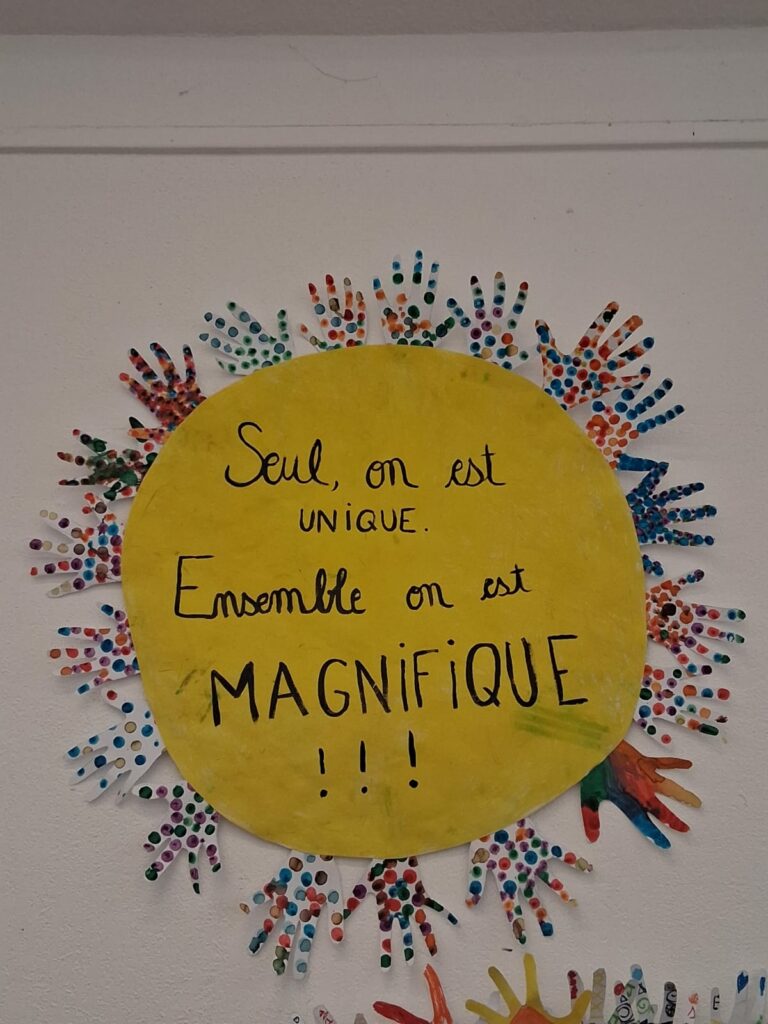 Seul, on est
UNiQUE.
Ensemble on est
MAGNiFiQUE
!!!